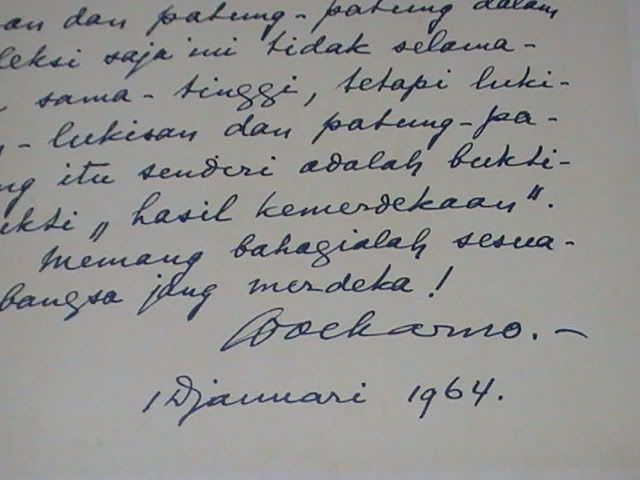 an dan patung-patung dalam
leksi saja ini tidak selama-
sama-tinggi, tetapi luki-
n-lukisan dan patung-pa-
ng itu senderi adalah bukti-
ukti „hasil kemerdekaan".
Memang bahagialah sesua-
bangsa jang merdeka!
Soekarno.-
1 Djanuari 1964.